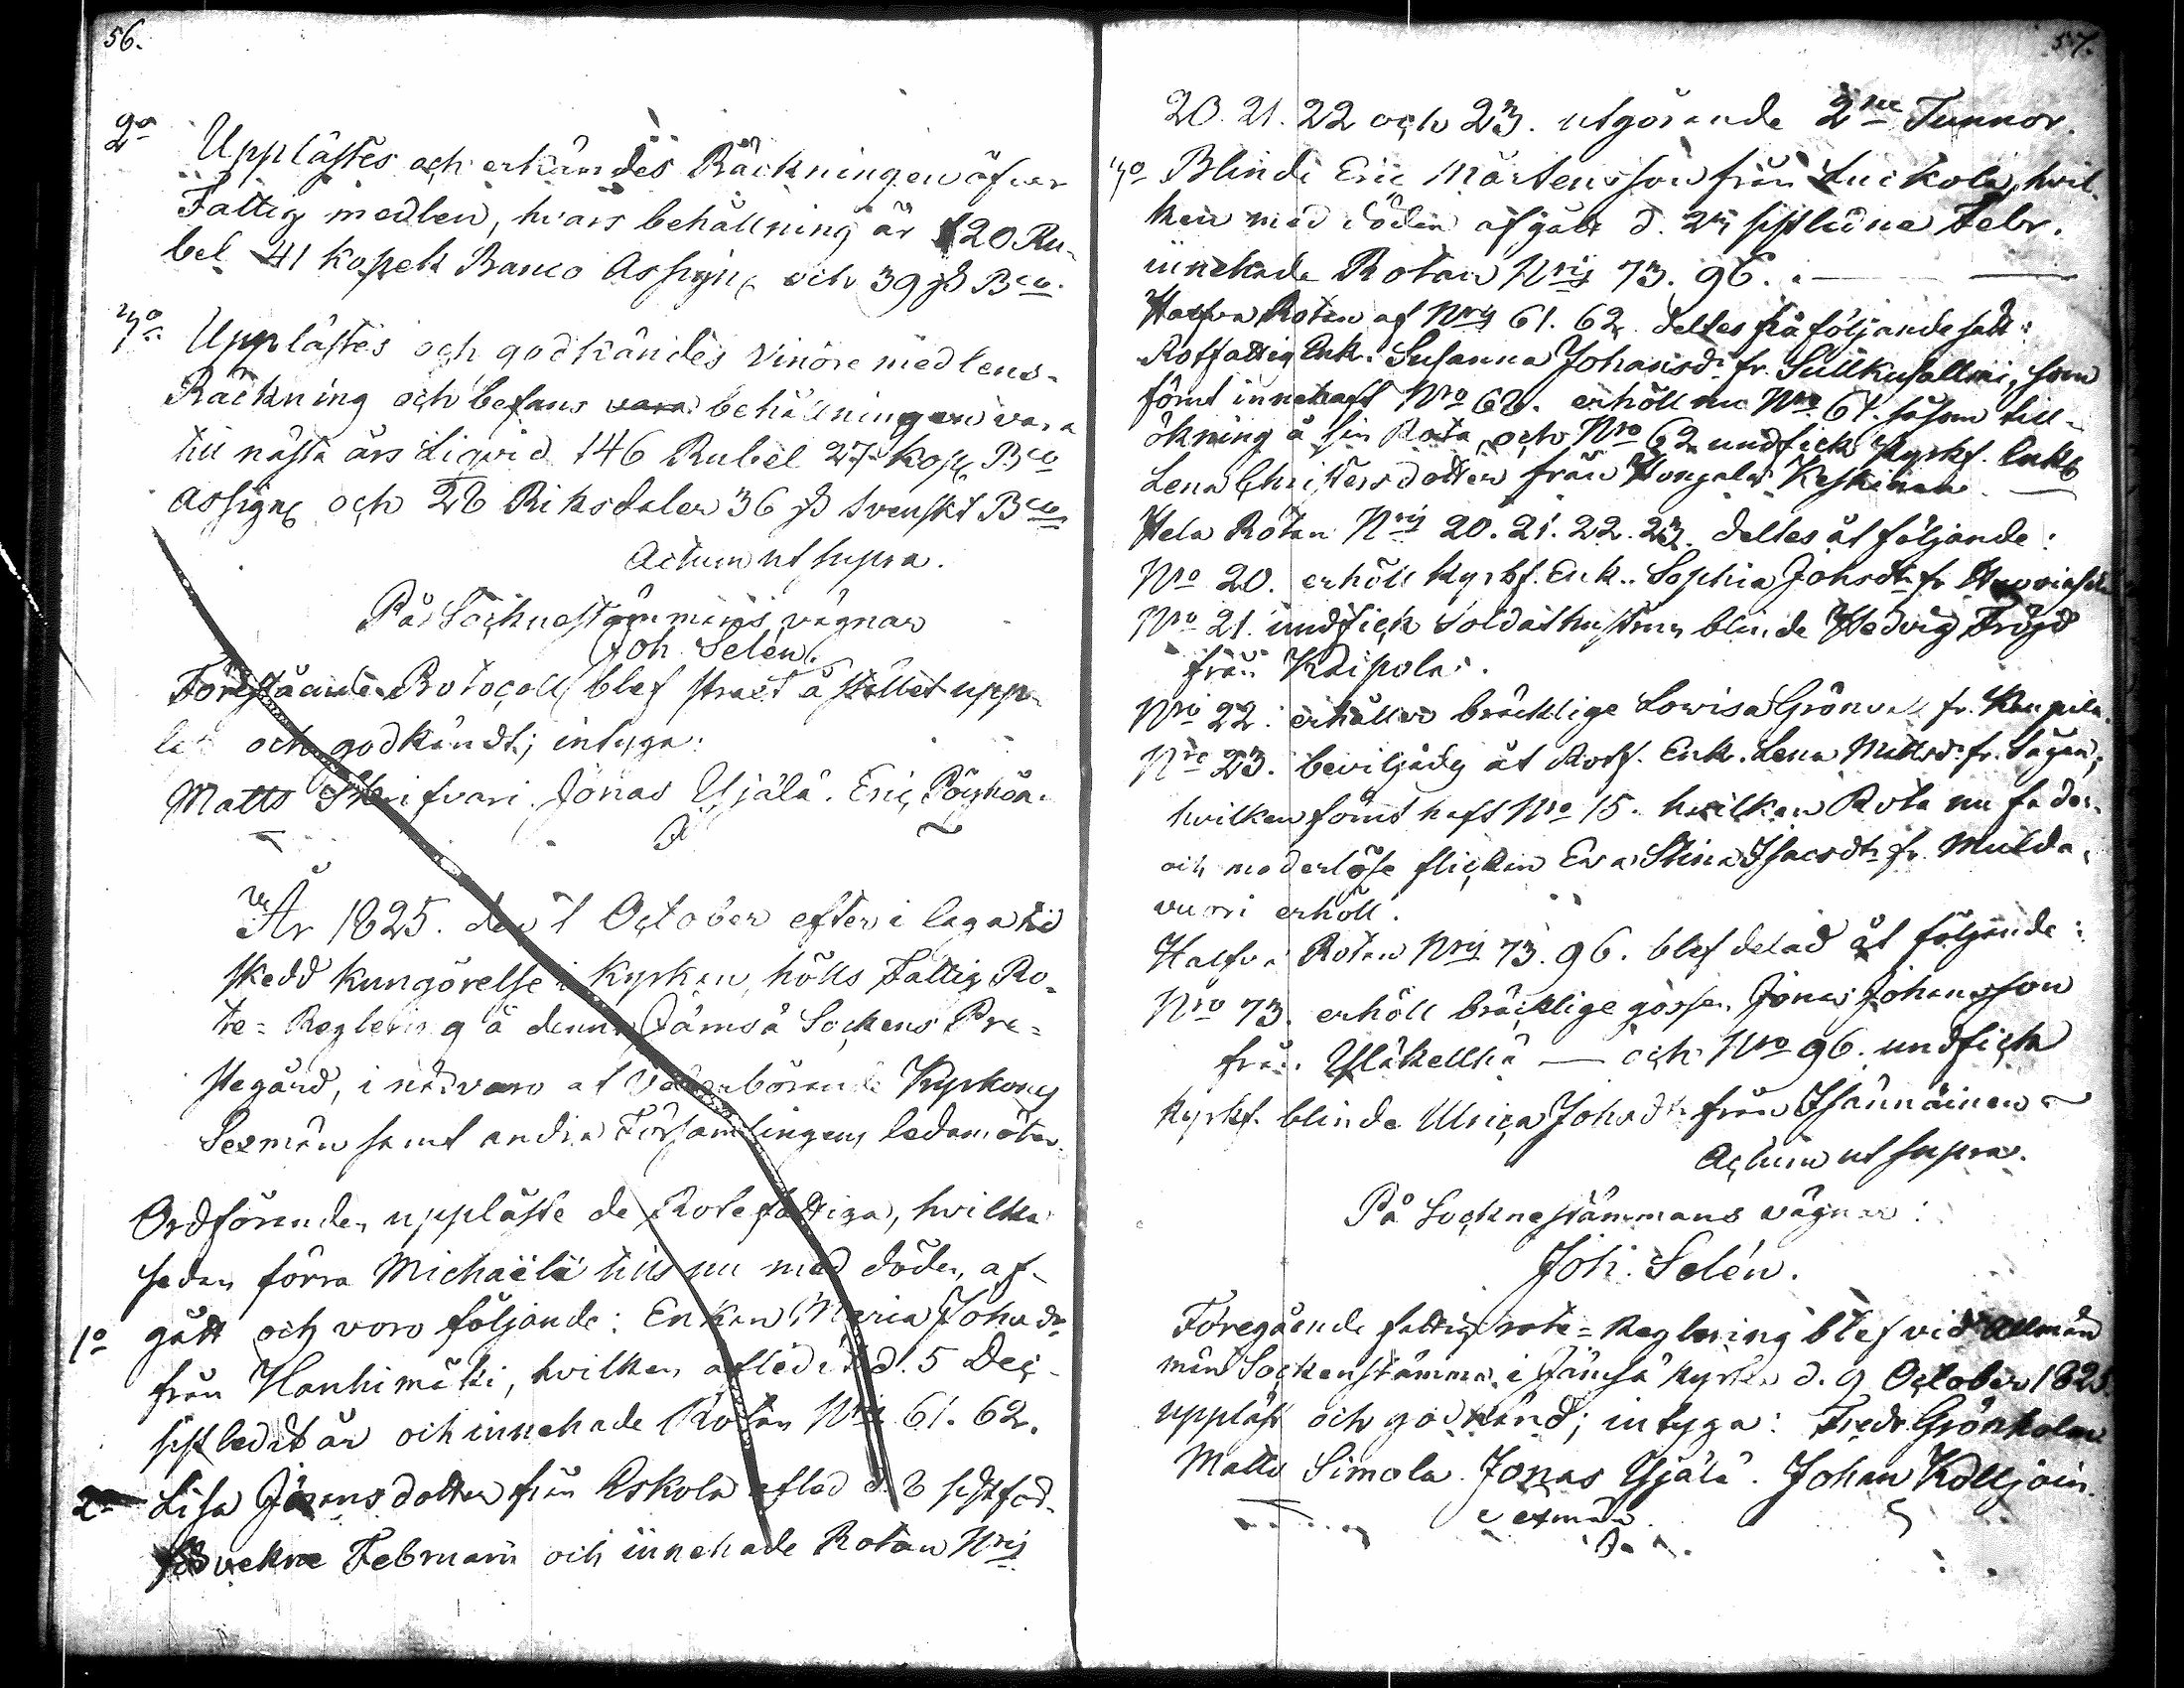 56.
2o Upplästes och erkändes Räckningen öfver
Fattig medlen, hvars behållning är 120 Ru-
bel 41 Kopek Banco Assign och 39 ß Bco.
3o Upplästes och godkändes Vinöre medlens
Räckning och befans vara behållningen vara
till nästa års Liqvid 146 Rubel 27 Kop Bco
Assign och 26 Riksdaler 36 ß Svenskt Bco
Actum ut supra.
På Sockne stämmans vägnar
Joh. Selén.
Förestående Protocoll blef strax å stället upp-
läst och godkändt; intyga:
Matts Jonas Ujälä. Eric Pöyhön.
År 1825. den 1 October efter i laga tid
skedd kungörelse i Kyrkan, hölls Fattig Ro-
te-Reglering å denna Jämsä Sockens Pre-
stegård, i närvaro af vederbörande Kyrkones
Sexmän samt andra Församlingens ledamöter.
Ordföranden uppläste de Rotefattiga, hvilka
sedan förra Michaëli tills nu med döden af-
1o gått och voro följande: Enkan Maria Johsdr
från Hanhimäki, hvilken afledit d. 5 Dec.
sistledit år och innehade Rotan Nris 61. 62.
2o Lisa Jöransdotter från Koskola afled d. 8 sist
vekne Februarii och innehade Rotan Nris
57.
20. 21. 22 och 23. utgörande 2ne Tunnor.
3o Blinde Eric Mårtensson från Luckola, hvil-
ken med döden afgått d. 27 sistledne Febr.
innehade Rotan Nris 73. 96.
Halfva Rotan af Nris 61. 62. deltes på följande sätt:
Rotfattig Enk. Susanna Johansdr fr. Sullkusallmi, som
förut innehaft Nro 60. erhöll nu Nro 61. såsom till-
ökning å sin Rota och Nro 62 undfick Kyrkf. Enk
Lena Christersdotter från Honjala Keskinen
Hela Rotan Nris 20. 21. 22. 23. deltes åt följande:
No 20. erhöll Kyrkf. Enk. Sophia Johsdr fr.
No 21. undfick Soldat hustrun blinde Hedvig Fröjd
från Kaipola.
Nro 22. erhåller bräcklige Lovisa Grönvall fr. Kaupila.
Nro 23. beviljades åt Rotf. Enk. Lena Mattsdr fr. Sagen,
hvilken förut haft No 15. hvilken Rota nu fader-
och moderlöse flickan Eva Stina Isacsdtr fr. Mulda-
vuori erhöll.
Halfva Rotan Nris 73. 96. blef delad åt följande:
Nro 73. erhöll bräcklige gossen Jonas Johansson
från Yläkellkä — och Nro 96. undfick
Kyrkf. blinde Ulrica Johsdtr från Isännäinen
Actum ut supra.
På Socknestämmans vägnar:
Joh. Selén.
Föregående fattig rote-Reglering blef vid Allmän
män Sockenstämma i Jämsä Kyrka d. 9 October 1825.
uppläst och godkänd; intyga: Fredr. Grönholm
Matts Simola. Jonas Ujälä. Johan Kolljoin.
sexmän.